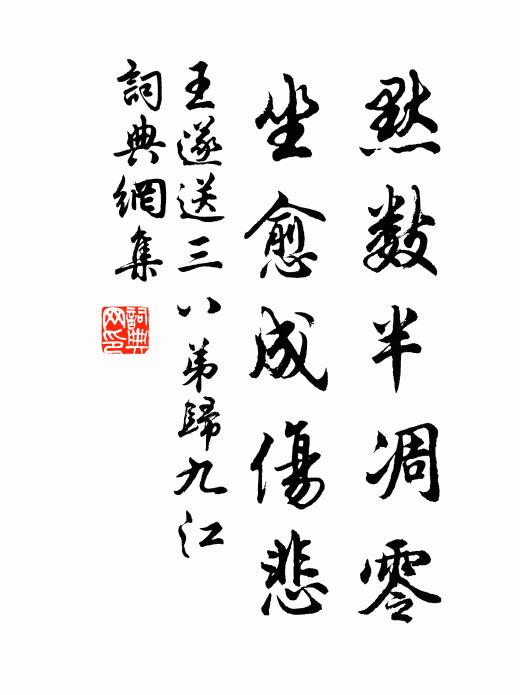 默数半凋零
坐愈成傷悲
王遂送三八弟歸九江
詞典網集
詞典网印